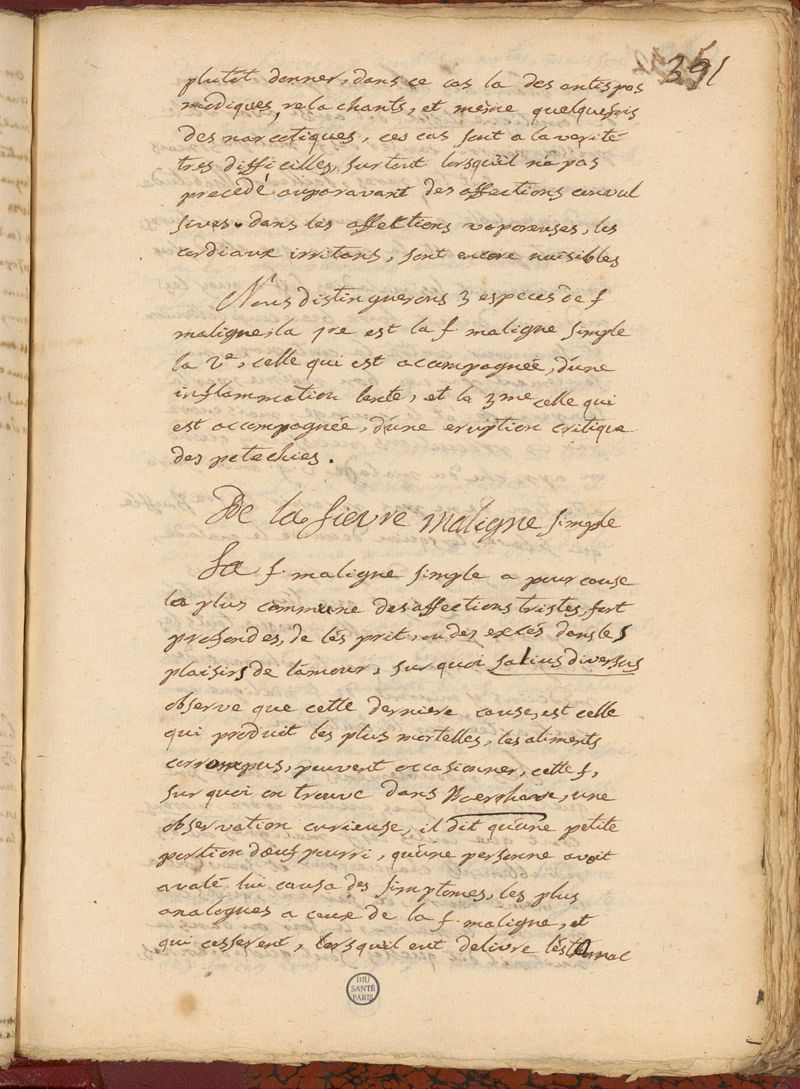 351
plutôt donner, dans ce cas la des antispas
modiques, relachants, et même quelquefois
des narcotiques, ces cas sont a la verité
tres difficilles, surtout lorsquil na pas
precédé auparavant des affections convul
sives. dans les affections vaporeuses, les
cordiaux irritans, sont encore nuisibles
Nous distinguerons 3 especes de f
maligne, la 1re est la f maligne simple
la 2e, celle qui est accompagnée, d'une
inflammation lente, et la 3me celle qui
est accompagnée, d'une eruption critique
des petechies.
De la fievre maligne simple
La f. maligne simple a pour cause
la plus commune des affections tristes, fort
profondes, de lés prit, ou des excés dans les
plaisirs de l'amour, sur quoi salius diversus
observe que cette derniere cause, est celle
qui produit les plus mortelles, les aliments
corrompus, peuvent occasionner, cette f,
sur quoi on trouve dans Boerhave, une
observation curieuse, il dit qu'une petite
portion d'œuf pourri, qu'une personne avoit
avalé lui causa des simptomes, les plus
analogues a ceux de la f. maligne, et
qui cesserent, lorsquil eut delivre léstomac
BIU
SANTÉ
PARIS